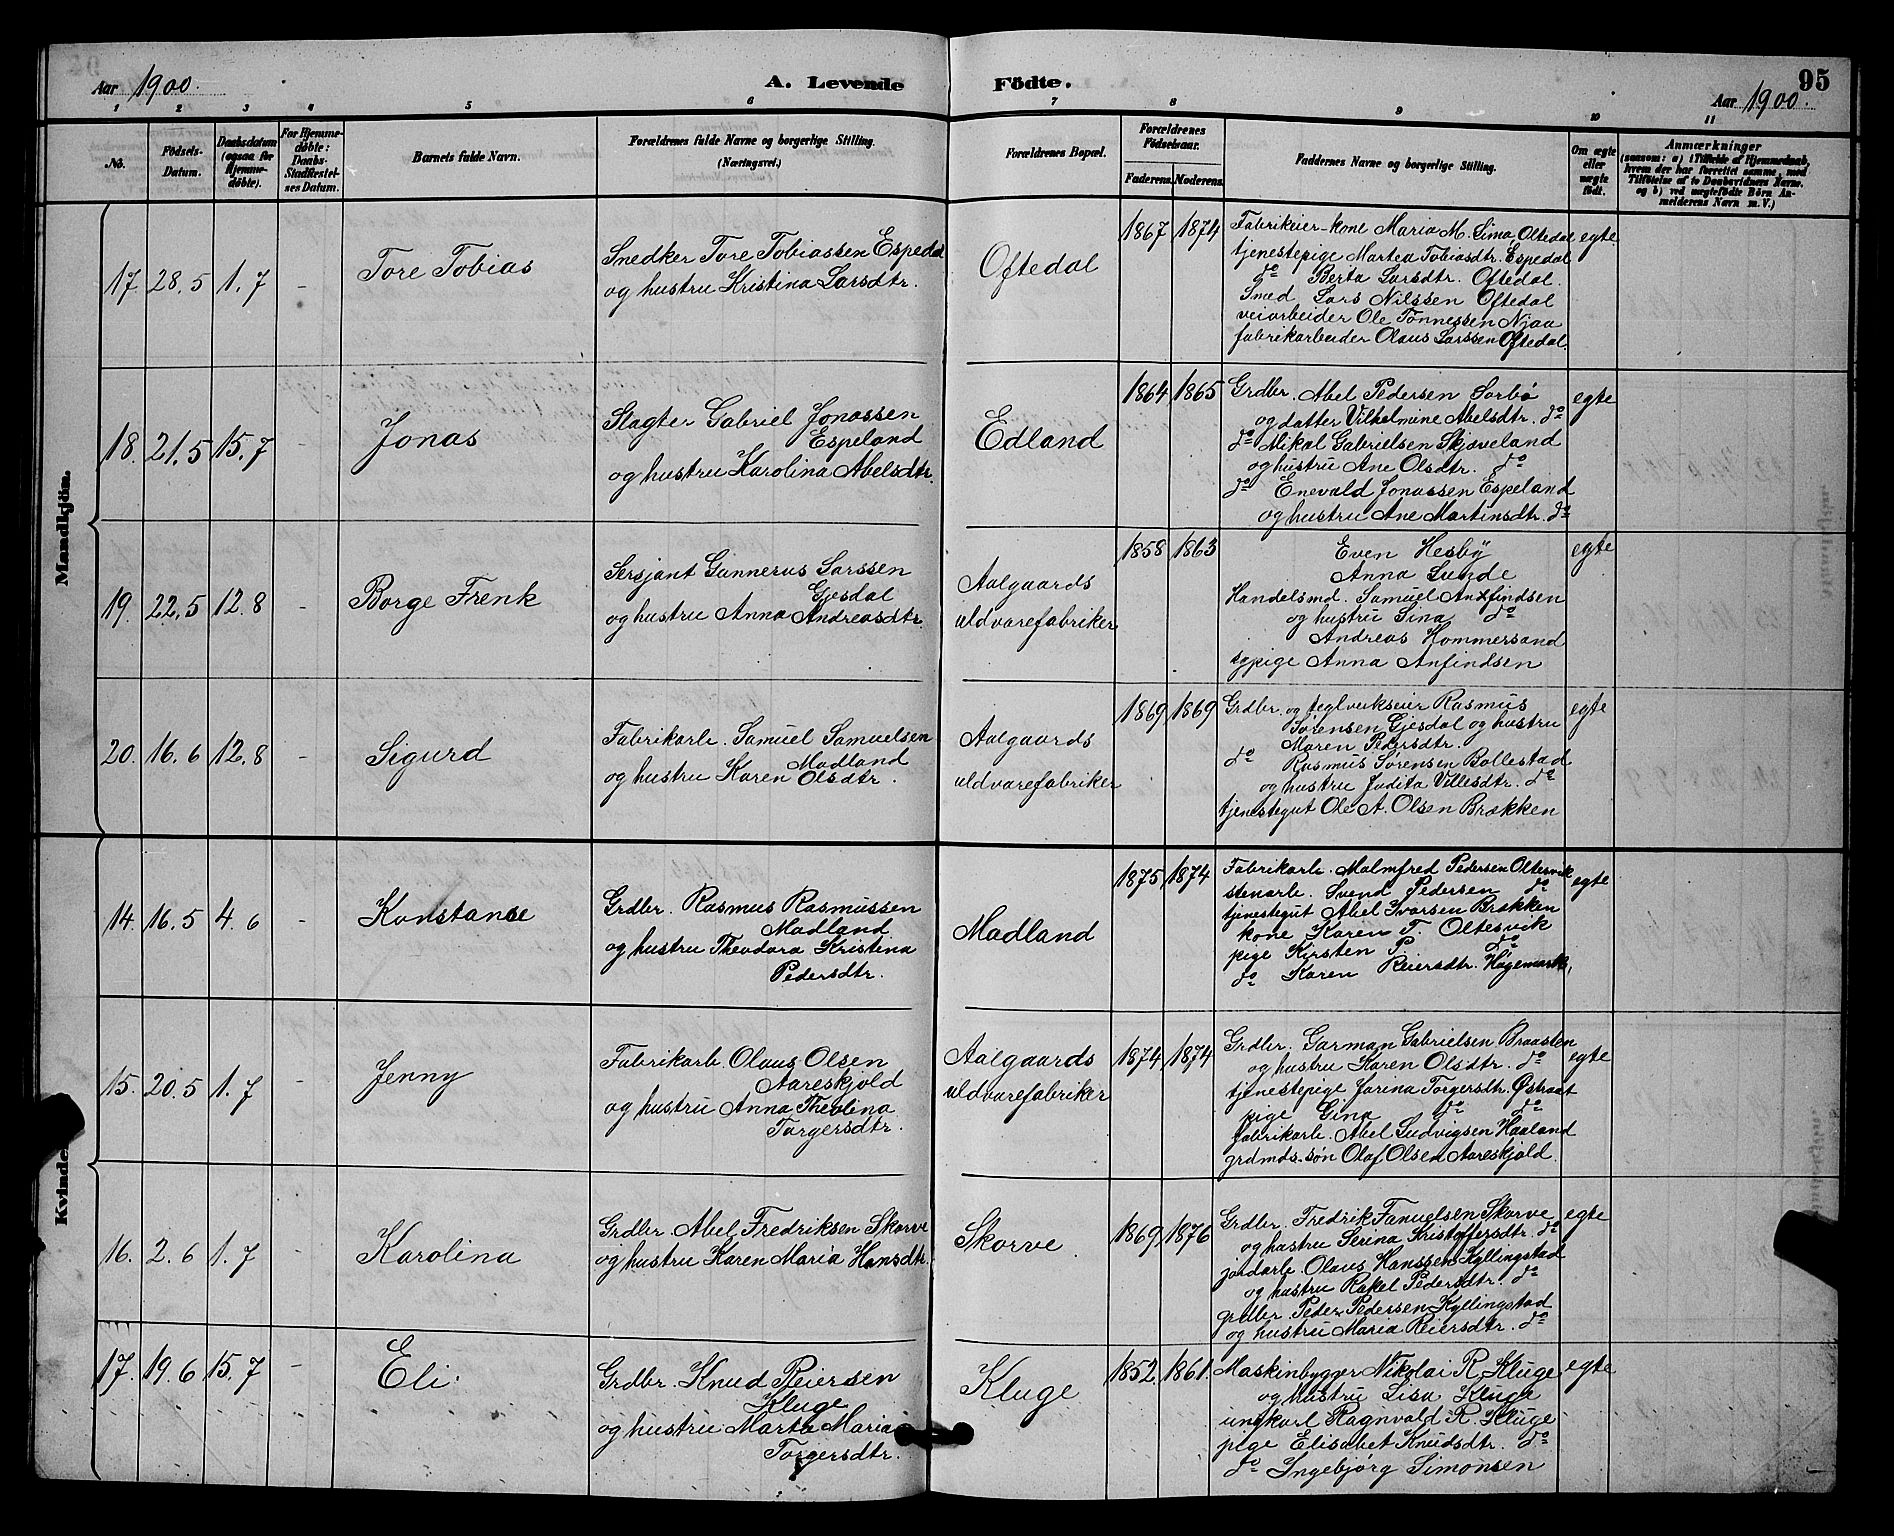 Aar 1900.
A. Levende
Födte.
95
Aar 1900.
1 2 3 4 5 6 7 8 9 10 11
No.
Födsels-Datum.
Daabsdatum (ogsaa for Hjemmedöbte).
For Hjemmedøbte: Daabs-Stadfæstelses Datum.
Barnets fulde Navn.
Forældrenes fulde Navne og borgerlige Stilling.
(Næringsvei.)
Forældrenes Bopæl.
Forældrenes Födselsaar.
Faderens. Moderens.
Faddernes Navne og borgerlige Stilling.
Om ægte eller uægte födt.
Anmærkninger
(saasom: a) i Tilfælde af Hjemmedaab, hvem der har forrettet samme, med Tilföielse af to Daabsvidners Navne, og b) ved uægtefödte Börn Anmelderens Navn m. V.)
Mandkjön.
17. 28.5 1.7 - Tore Tobias
Snedker Tore Tobiassen Espedal
og hustru Kristina Larsdtr.
Oftedal
1867 1874
Fabrikeier-kone Maria M. Lima Oftedal
tjenestepige Martea Tobiasdtr. Espedal
do Berta Larsdtr. Oftedal.
Smed Lars Nilssen Oftedal
veiarbeider Ole Tønnessen Njaa
fabrikarbeider Olaus Larssen Oftedal.
egte
18. 21.5 15.7 Jonas
Slagter Gabriel Jonassen
Espeland
og hustru Karolina Abelsdtr.
Edland
1864 1865
Grdbr. Abel Pedersen Sorbø
og datter Vilhelmine Abelsdtr. do
do Mikal Gabrielsen Skjæveland
og hustru Ane Olsdtr. do
do Enevald Jonassen Espeland
og hustru Ane Martinsdtr. do
egte
19. 22.5 12.8 - Borge Frenk
Sersjant Gunnerus Larssen
Gjesdal
og hustru Anna Andreasdtr.
Aalgaards
uldvarefabriker
1858 1863
Even Hesby
Anna Lunde
Handelsmd. Samuel Anfindsen
og hustru Sina do
Andreas Hommersand
sypige Anna Anfindsen
egte
20. 16.6 12.8 - Sigurd
Fabrikarb. Samuel Samuelsen
Madland
og hustru Karen Olsdtr.
Aalgaards
uldvarefabriker
1869 1869
Grdbr. og teglverkseier Rasmus
Sørensen Gjesdal og hustru
Maren Pedersdtr.
do Rasmus Sørensen Bollestad
og hustru Judita Villesdtr. do
tjenestegut Ole A. Olsen Brækken
egte
Kvinde
14. 16.5 4.6 - Konstanse
Grdbr. Rasmus Rasmussen
Madland
og hustru Theodora Kristina
Pedersdtr.
Madland
1875 1874
Fabrikarb. Malmfred Pedersen Oltesvik
stenarb. Svend Pedersen do
tjenestegut Abel Ivarsen Brækken
kone Karen T. Oltesvik
pige Kirsten P. do
do Karen Reiersdtr. Høgemark,
egte
15. 20.5 1.7 - Jenny
Fabrikarb. Olaus Olsen
Aareskjold
og hustru Anna Theolina
Torgersdtr.
Aalgaards
uldvarefabriker
1874 1874
Grdbr. Garman Gabrielsen Braasten
og hustru Karen Olsdtr. do
tjenestepige Jarina Torgersdtr. Østraat
pige Gina do do
fabrikarb. Abel Ludvigsen Haaland
grdmds.søn Olaf Olsen Aareskjold.
egte
16. 2.6 1.7 Karolina
Grdbr. Abel Fredriksen Skorve
og hustru Karen Maria Hansdtr.
Skorve.
1869 1876
Grdbr. Fredrik Fanuelsen Skorve
og hustru Serina Kristoffersdtr. do
jordarb. Olaus Hanssen Kyllingstad
og hustru Rakel Pedersdtr. do
grdbr. Peder Pedersen Kyllingstad
og hustru Maria Reiersdtr. do
egte
17. 19.6 15.7 - Eli.
Grdbr. Knud Reiersen
Kluge
og hustru Marta Maria
Torgersdtr.
Kluge
1852 1861.
Maskinbygger Nikolai R. Kluge
og hustru Lisa Kluge
ungkarl Ragnvald R. Kluge
pige Elisabet Knudsdtr. do
do Ingebjørg Simonsen
egte